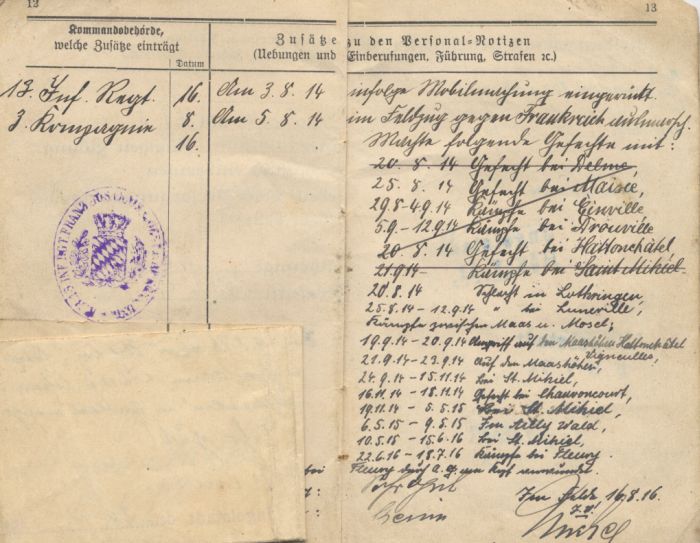 12
13
Kommandobehörde,
welche Zusätze einträgt
Datum
Zusätze zu den Personal-Notizen
(Uebungen und Einberufungen, Führung, Strafen ꝛc.)
13. Inf. Regt. 16. Am 3. 8. 14 infolge Mobilmachung eingerückt.
3. Kompagnie 8. Am 5. 8. 14 im Feldzug gegen Frankreich
16.
Machte folgende Gefechte mit:
20. 8. 14 Gefecht bei Delme,
25. 8. 14 Gefecht bei Maixe,
29.8-4.9.14 Kämpfe bei Einville
5.9.-12.9.14 Kämpfe bei Drouville
20. 8. 14 Gefecht bei Hattonchâtel
21.9.14- Kämpfe bei Saint Mihiel
20.8.14 Schlacht in Lothringen,
25.8.14-12.9.14 " bei Luneville,
Kämpfe zwischen Maas u. Mosel;
19.9.14-20.9.14 Angriff auf den Maashöhen Hattonchâtel
Vigneulles,
21.9.14-23.9.14 Auf den Maashöhen,
24.9.14-15.11.14 bei St. Mihiel,
16.11.14-18.11.14 Gefecht bei Chauvoncourt,
19.11.14-5.5.15 bei St. Mihiel,
6.5.15-9.5.15 Im Ailly Wald,
10.5.15-15.6.16 bei St. Mihiel,
22.6.16-18.7.16 Kämpfe bei Fleury.
bei Fleury durch A. G. am Kopf verwundet.
Im Felde 16.8.16.